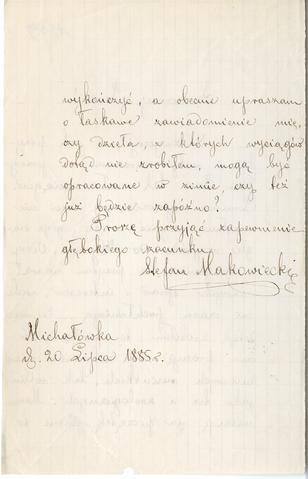 wykończyć, a obecnie upraszam
o łaskawe zawiadomienie mię,
czy dzieła z których wyciągów
dotąd nie zrobiłem, mogą być
opracowane w zimie, czy też
już będzie zapóźno?
Proszę przyjąć zapewnienie
głębokiego szacunku
Stefan Makowiecki
Michałówka
d. 20 Lipca 1885 r.